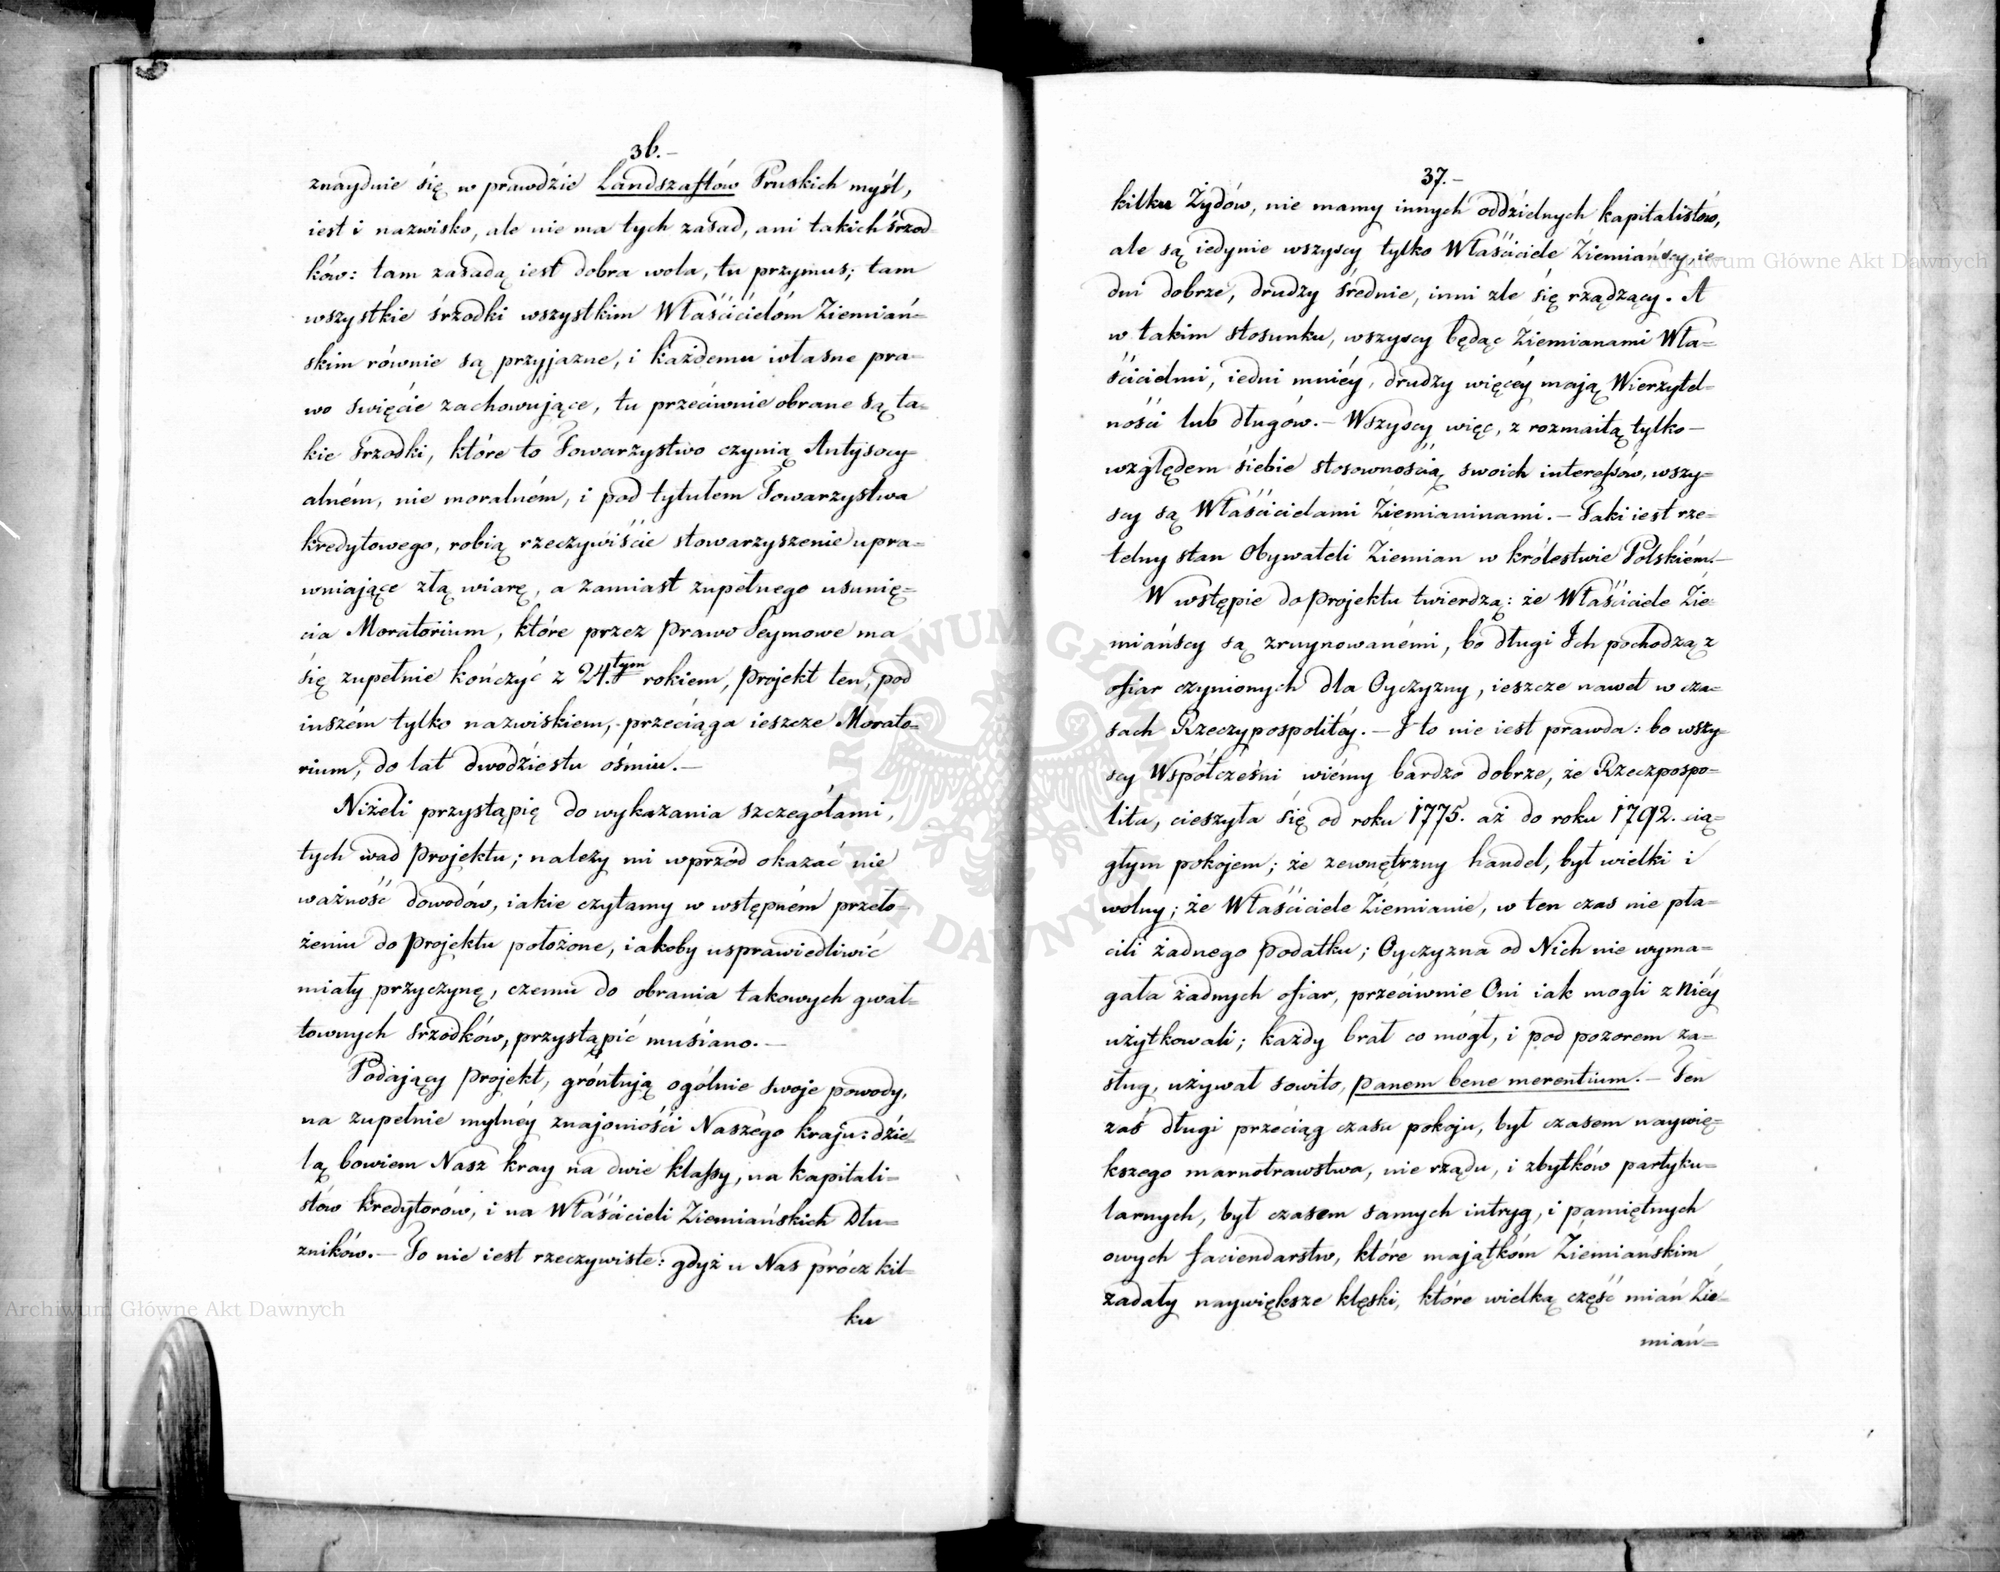 36.–
znayduie się w prawdzie Landszaftów Pruskich myśl,
iest i nazwisko, ale nie ma tych zasad, ani takich śrzod=
ków: tam zasadą iest dobra wola, tu przymus; tam
wszystkie śrzodki wszystkim Właścicielóm Ziemiań=
skim równie są przyjazne, i każdemu własne pra=
wo swięcie zachowujące, tu przeciwnie obrane są ta=
kie śrzodki, które to Towarzystwo czynią Antysocy=
alném, nie moralném, i pod tytułem Towarzystwa
kredytowego, robią rzeczywiście stowarzyszenie upra=
wniające złą wiarę, a zamiast zupełnego usunię=
cia Moratorium, które przez Prawo Seymowe ma
się zupełnie kończyć z 24.tym rokiem, projekt ten, pod
inszém tylko nazwiskiem, przeciąga ieszcze Morato=
rium, do lat dwudziestu óśmiu.–
Niżeli przystąpię do wykazania szczegółami,
tych wad Projektu; należy mi wprzód okazać nie
ważność dowodów, iakie czytamy w wstępném przeło=
żeniu do Projektu położone, iakoby usprawiedliwić
miały przyczynę, czemu do obrania takowych gwał=
townych srzodków, przystąpić musiano.–
Podający Projekt, gróntują ogólnie swoje powody,
na zupełnie mylnéy znajomości Naszego kraju: dzie=
lą bowiem Nasz kray na dwie klassy, na kapitali=
stów kredytorów, i na Właścicieli Ziemiańskich Dłu=
zników.– To nie iest rzeczywiste: gdyż u Nas prócz kil=
ku
37.–
kilku Żydów, nie mamy innych oddzielnych kapitalistów,
ale są iedynie wszyscy tylko Właściciele Ziemiańscy, ie=
dni dobrze, drudzy średnie, inni zle się rządzący. A
w takim stosunku, wszyscy będąc Ziemianami Wła=
ścicielmi, iedni mniéy, drudzy więcéy mają Wierzytel=
ności lub długów.– Wszyscy więc, z rozmaitą tylko –
względem siebie stosownością swoich interessów, wszy=
scy są Właścicielami Ziemianinami.– Taki iest rze=
telny stan Obywateli Ziemian w królestwie Polskiém.–
W wstępie do Projektu twierdzą: że Właściciele Zie=
miańscy są zruynowanémi, bo długi Ich pochodzą z
ofiar czynionych dla Oyczyzny, ieszcze nawet w cza=
sach Rzeczypospolitéy.– I to nie iest prawda: bo wszy=
scy Współcześni wiémy bardzo dobrze, że Rzeczpospo=
lita, cieszyła się od roku 1775. aż do roku 1792. cią=
głym pokojem; że zewnętrzny handel, był wielki i
wolny; że Właściciele Ziemianie, w ten czas nie pła=
cili żadnego Podatku; Oyczyzna od Nich nie wyma=
gała żadnych ofiar, przeciwnie Oni iak mogli z Niéy
użytkowali; każdy brał co mógł, i pod pozorem za=
sług, używał sowito, panem bene merentium.– Ten
zaś długi przeciąg czasu pokoju, był czasem naywię=
kszego marnotrawstwa, nie rządu, i zbytków partyku=
larnych, był czasem samych intryg, i pamiętnych
owych faciendarstw, które majątkóm Ziemiańskim
zadały naywiększe klęski, które wielką część mian Zie=
miań=
Archiwum Główne Akt Dawnych
Archiwum Główne Akt Dawnych
ARCHIWUM GŁÓWNE AKT DAWNYCH